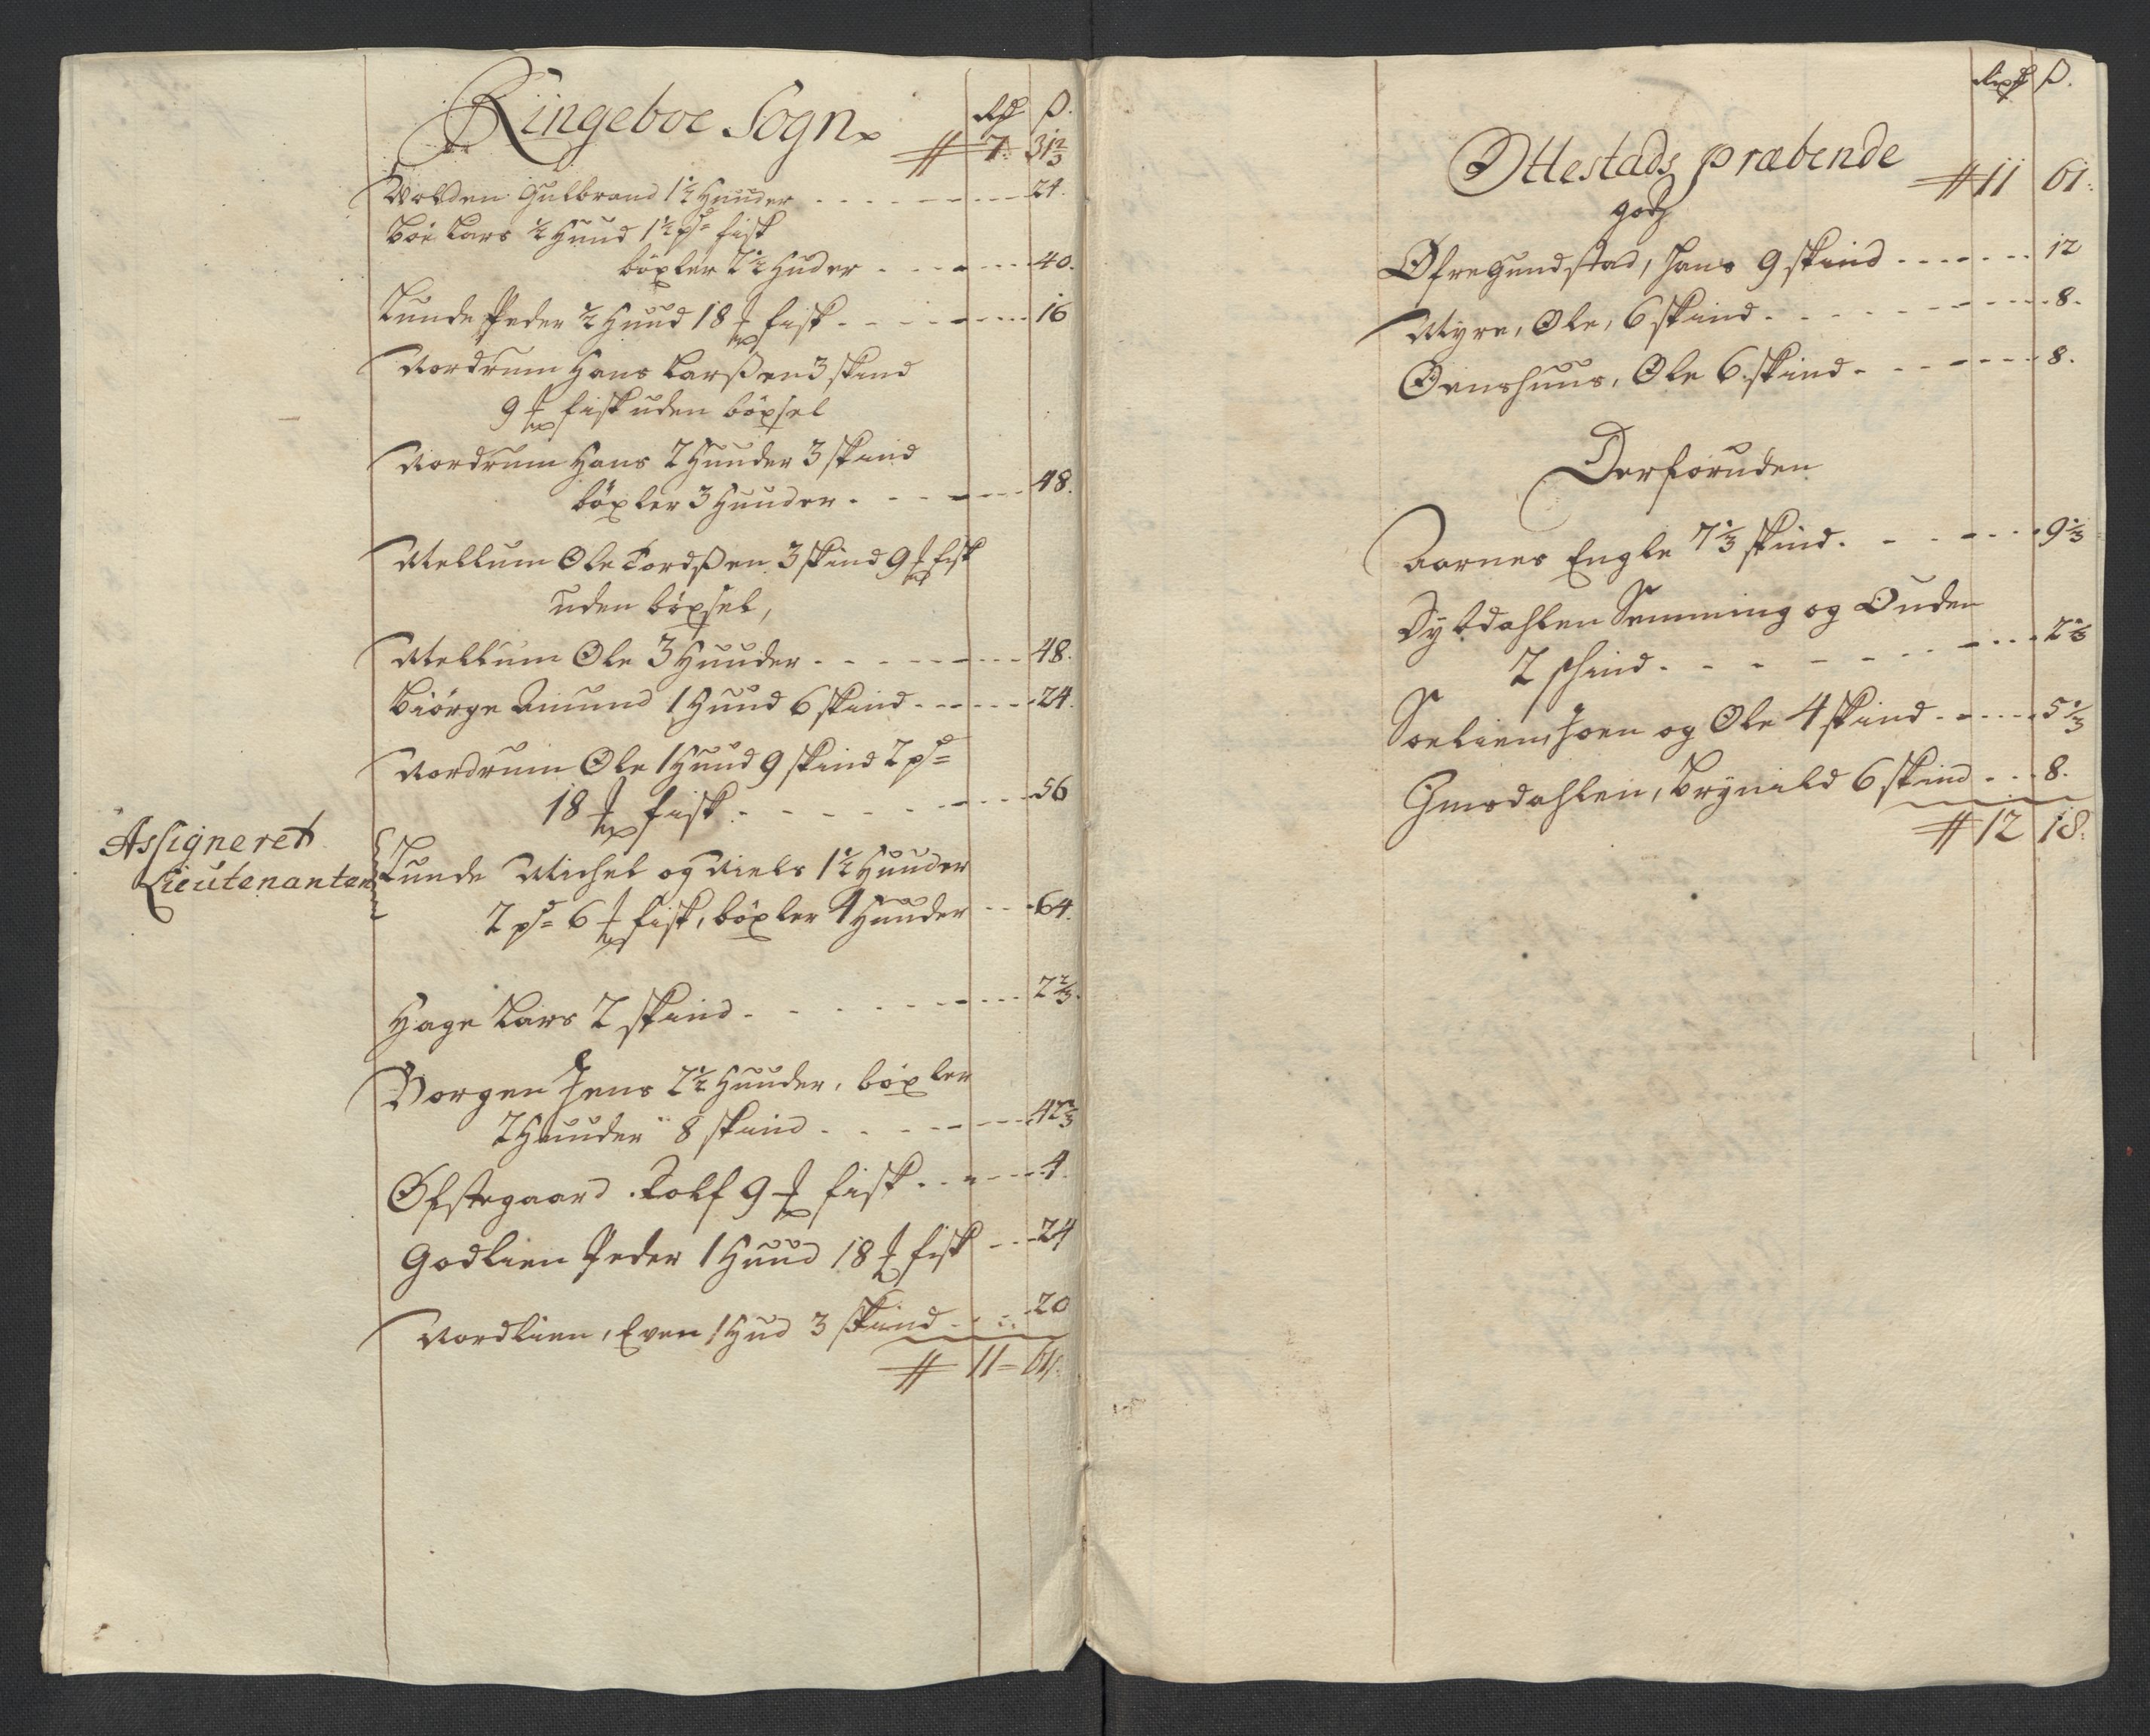 Ringeboe Sogn
Rdr ß.
# 7. 31 2/3
Volden Gulbrand 1 1/2 Huuder - - - 24.
Böe Lars 1/2 Huud 1 1/2 psd fisk
böxler 2 1/2 Huder - - - 40.
Lunde Peder 1/2 Huud 18 fisk - - - 16
Nordrum Hans Larßen 3 skind
9 fisk uden böxsel
Nordrum Hans 2 Huuder 3 skind
böxler 3 Huuder - - - 48.
Mellum Ole Tordßen 3 skind 9 fisk
uden böxsel,
Mellum Ole 3 Huuder - - - 48.
Biörge Amund 1 Huud 6 skind - - - 24.
Nordrum Ole 1 Huud 9 skind 2 psd
18 fisk - - - 56
Assigneret
Lieutenanten
Lunde Michel og Niels 1 1/2 Huuder
2 psd 6 fisk, böxler 4 Huuder - - - 64.
Hage Lars 2 skind - - - 2 2/3.
Vorgen Jens 2 1/2 Huuder, böxler
2 Huuder 8 skind - - - 42 2/3
Øfstegaard Rolf 9 fisk - - - 4.
Godlien Peder 1 Huud 18 fisk - - - 24
Nordlien, Even 1 Hud 3 skind - - - 20
# 11 = 61.
Rixdr ß.
Ottestads præbende
godz
# 11 61.
Øfregundstad, Hans 9 skind - - - 12
Myre, Ole, 6 skind - - - 8.
Ørnshuus, Ole 6 skind - - - 8.
Derforuden
Aarnes Engle 7 1/3 skind - - - 9 1/3
Dybdahlen Semming og Ouden
2 skind - - - 2 2/3
Soelien, Joen og Ole 4 skind - - - 5 1/3
Imsdahlen, Brynild 6 skind - - - 8.
# 12 18.